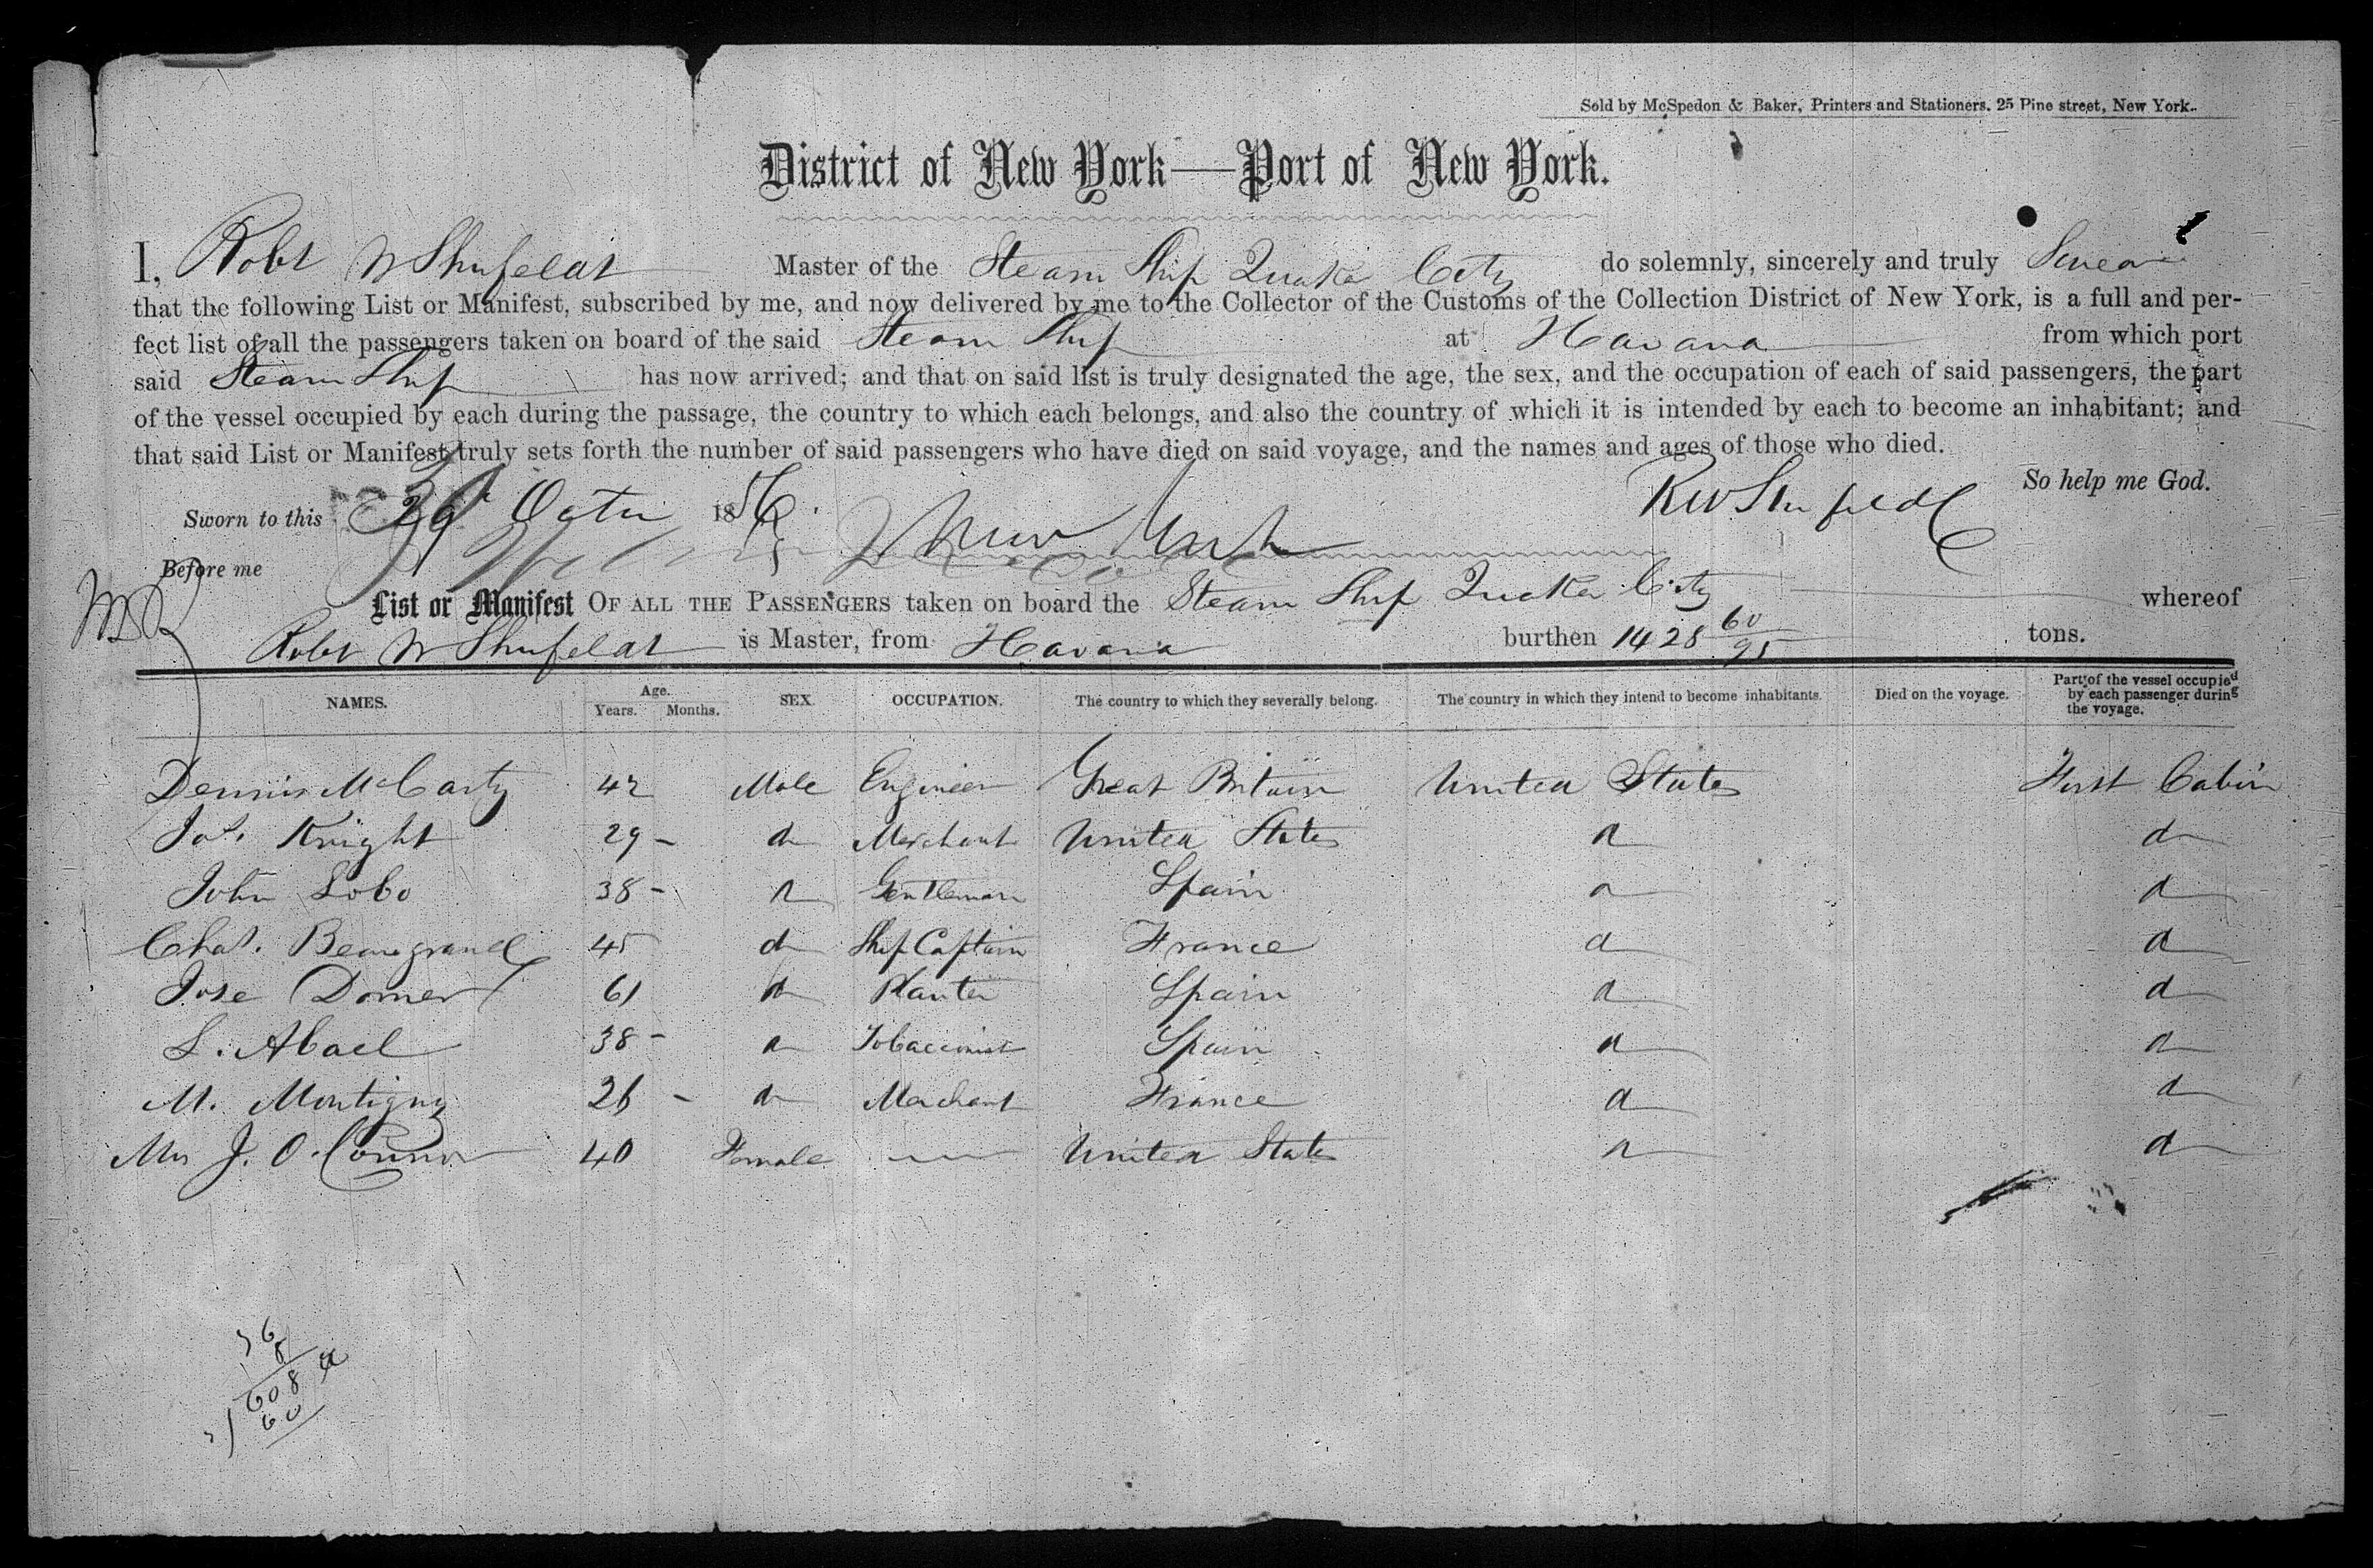 Sold by McSpedon & Baker, Printers and Stationers. 25 Pine street, New York.
District of New York—Port of New York.
I, Robt W Shufeldt Master of the Steam Ship Quaker City do solemnly, sincerely and truly Swear
that the following List or Manifest, subscribed by me, and now delivered by me to the Collector of the Customs of the Collection District of New York, is a full and per-
fect list of all the passengers taken on board of the said Steam Ship at Havana from which port
said Steam Ship has now arrived; and that on said list is truly designated the age, the sex, and the occupation of each of said passengers, the part
of the vessel occupied by each during the passage, the country to which each belongs, and also the country of which it is intended by each to become an inhabitant; and
that said List or Manifest truly sets forth the number of said passengers who have died on said voyage, and the names and ages of those who died.
So help me God.
Sworn to this 1856. RW Shufeldt
Before me
List or Manifest OF ALL THE PASSENGERS taken on board the Steam Ship Quaker City whereof
Robt W Shufeldt is Master, from Havana burthen 1428 60/95 tons.
NAMES. Age. Years. Months. SEX. OCCUPATION. The country to which they severally belong. The country in which they intend to become inhabitants. Died on the voyage. Part of the vessel occupied by each passenger during the voyage.
Dennis McCarty 42 Male Engineer Great Britain United States First Cabin
Jos. Knight 29 - do Merchant United States do do
John Lobo 38 - do Gentleman Spain do do
Chas. Beaugrand 45 do Ship Captain France do do
Jose Domer 61 do Planter Spain do do
L. Abael 38 - do Tobacconist Spain do do
M. Montigny 26 - do Merchant France do do
Mrs J. O. Connor 40 Female United States do do
76
8
608
60